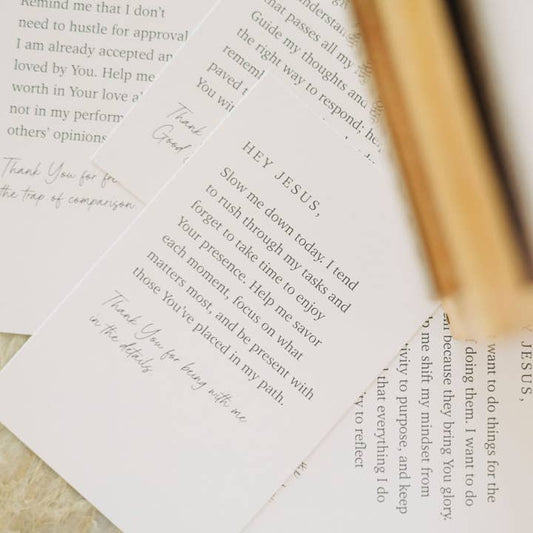 Remind me that I don't
need to hustle for approval
I am already accepted an
loved by You. Help me
worth in Your love a
not in my perform
others' opinions
Thank You for
the trap of comparison.
understan
that passes all my
Guide my thoughts and
the right way to respond;
remem
paved
You wi
Thank
Good
HEY JESUS,
Slow me down today. I tend
to rush through my tasks and
forget to take time to enjoy
Your presence. Help me savor
each moment, focus on what
matters most, and be present with
those You've placed in my path.
Thank You for being with me
in the details
JESUS,
want to do things for the
doing them. I want to do
because they bring You glory.
me shift my mindset from
tivity to purpose, and keep
that everything I do
ty to reflect